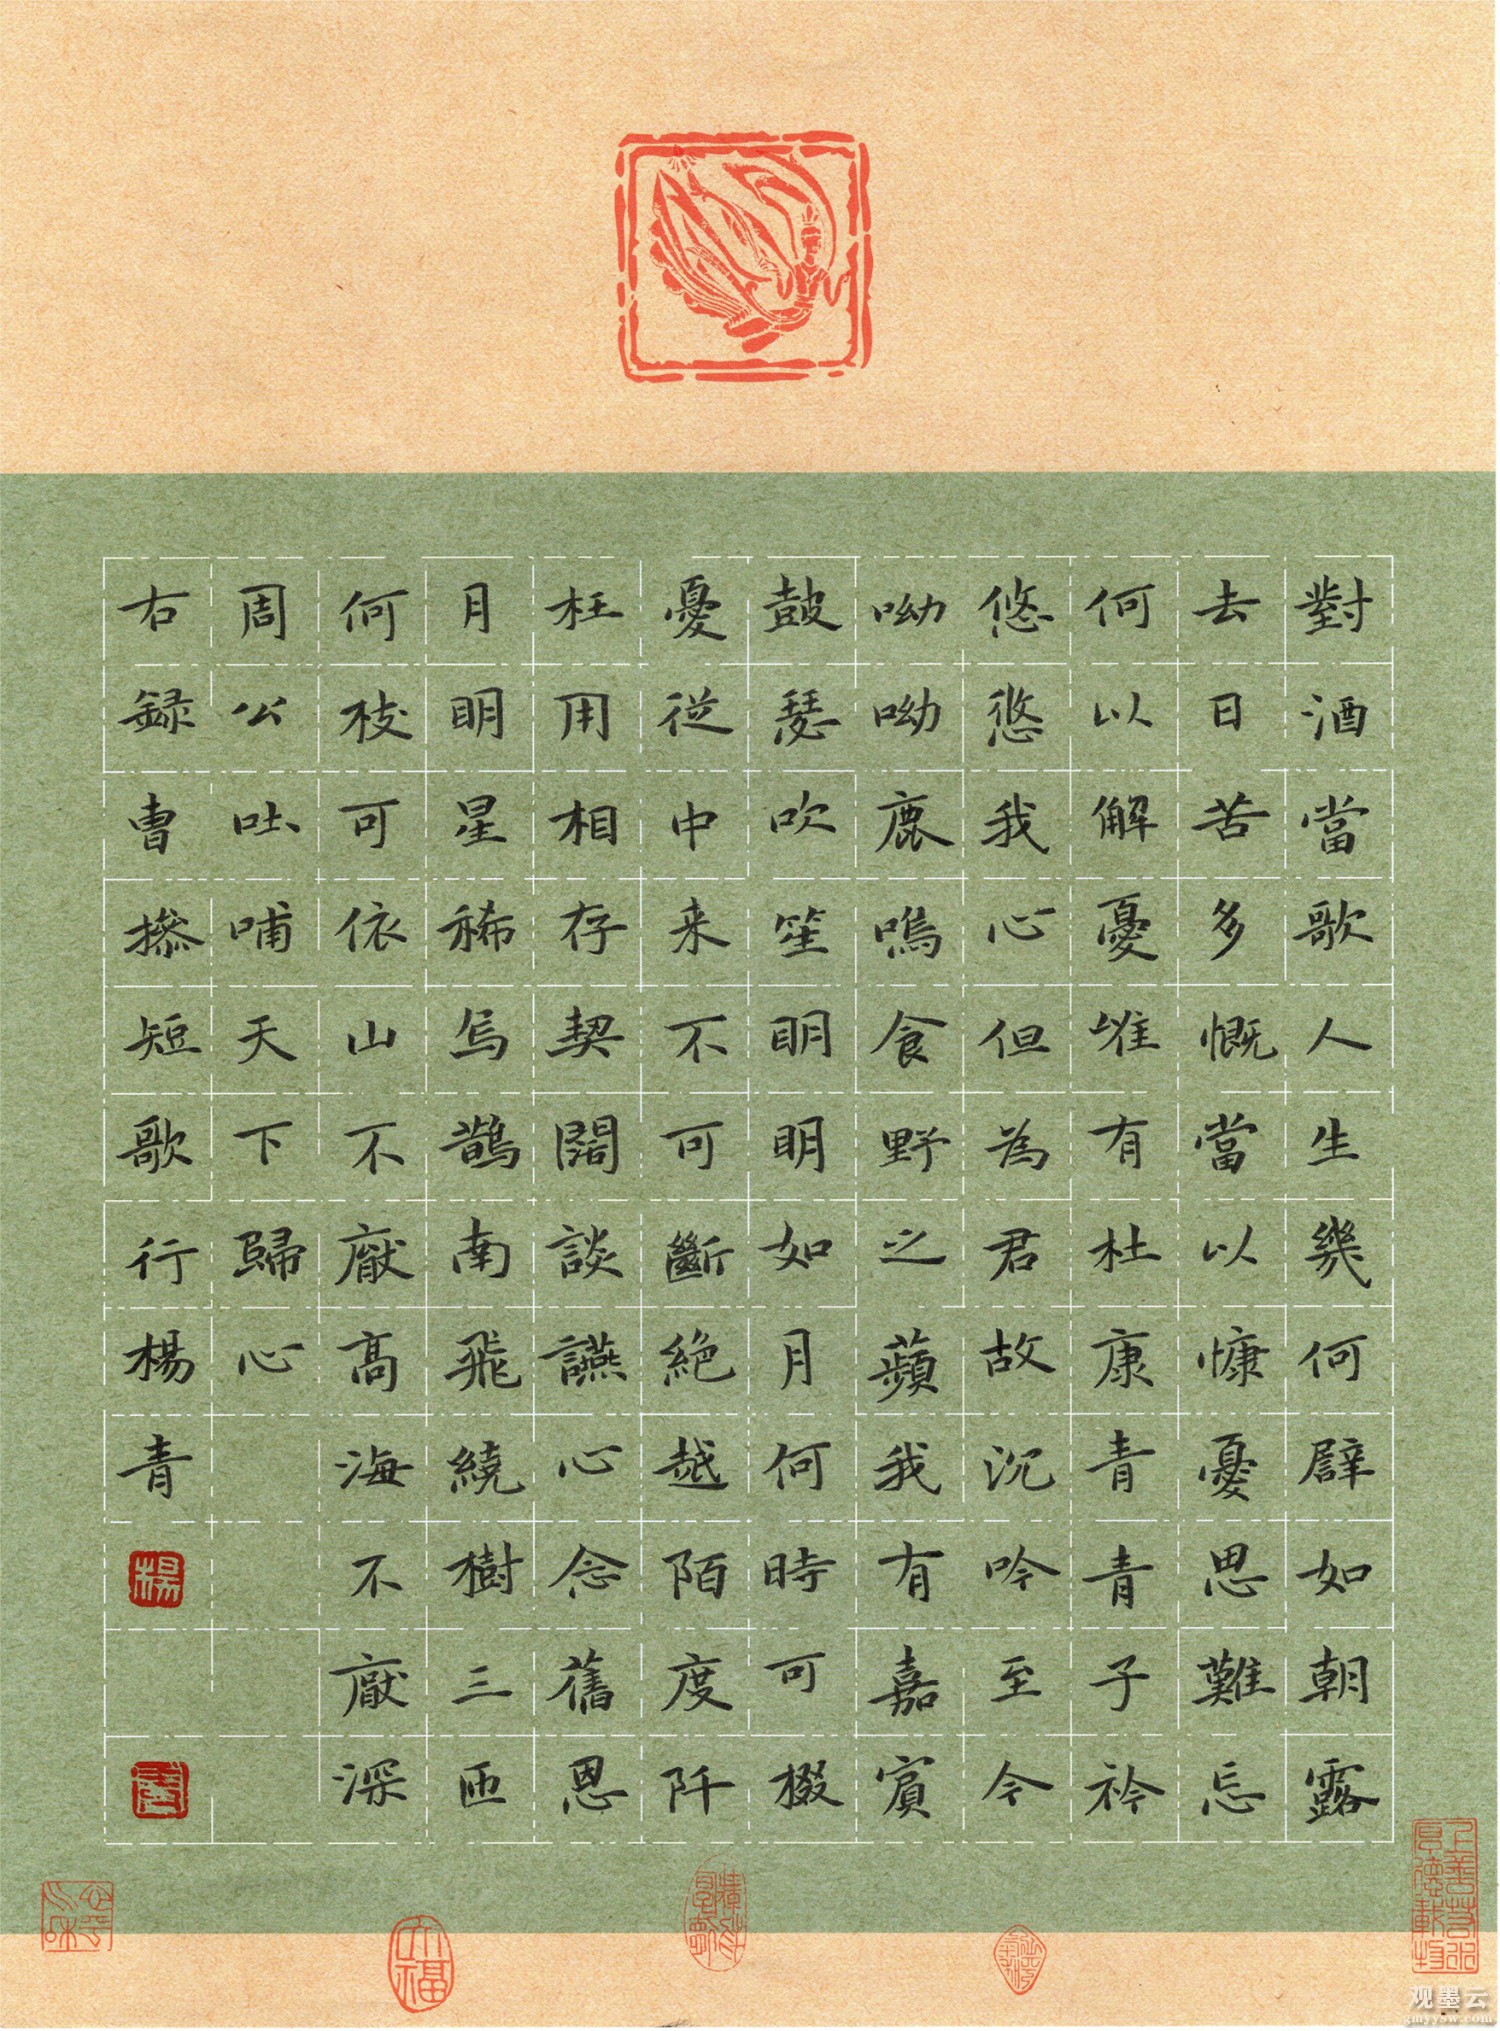 對酒當歌人生幾何譬如朝露
去日苦多慨當以慷憂思難忘
何以解憂唯有杜康青青子衿
悠悠我心但為君故沉吟至今
呦呦鹿鳴食野之蘋我有嘉賓
鼓瑟吹笙明明如月何時可掇
憂從中来不可斷絶越陌度阡
枉用相存契闊談讌心念舊恩
月明星稀烏鵲南飛繞樹三匝
何枝可依山不厭高海不厭深
周公吐哺天下歸心
右録曹操短歌行楊青
楊
青
上善若水
厚德載物
观墨云
gmyysw.com